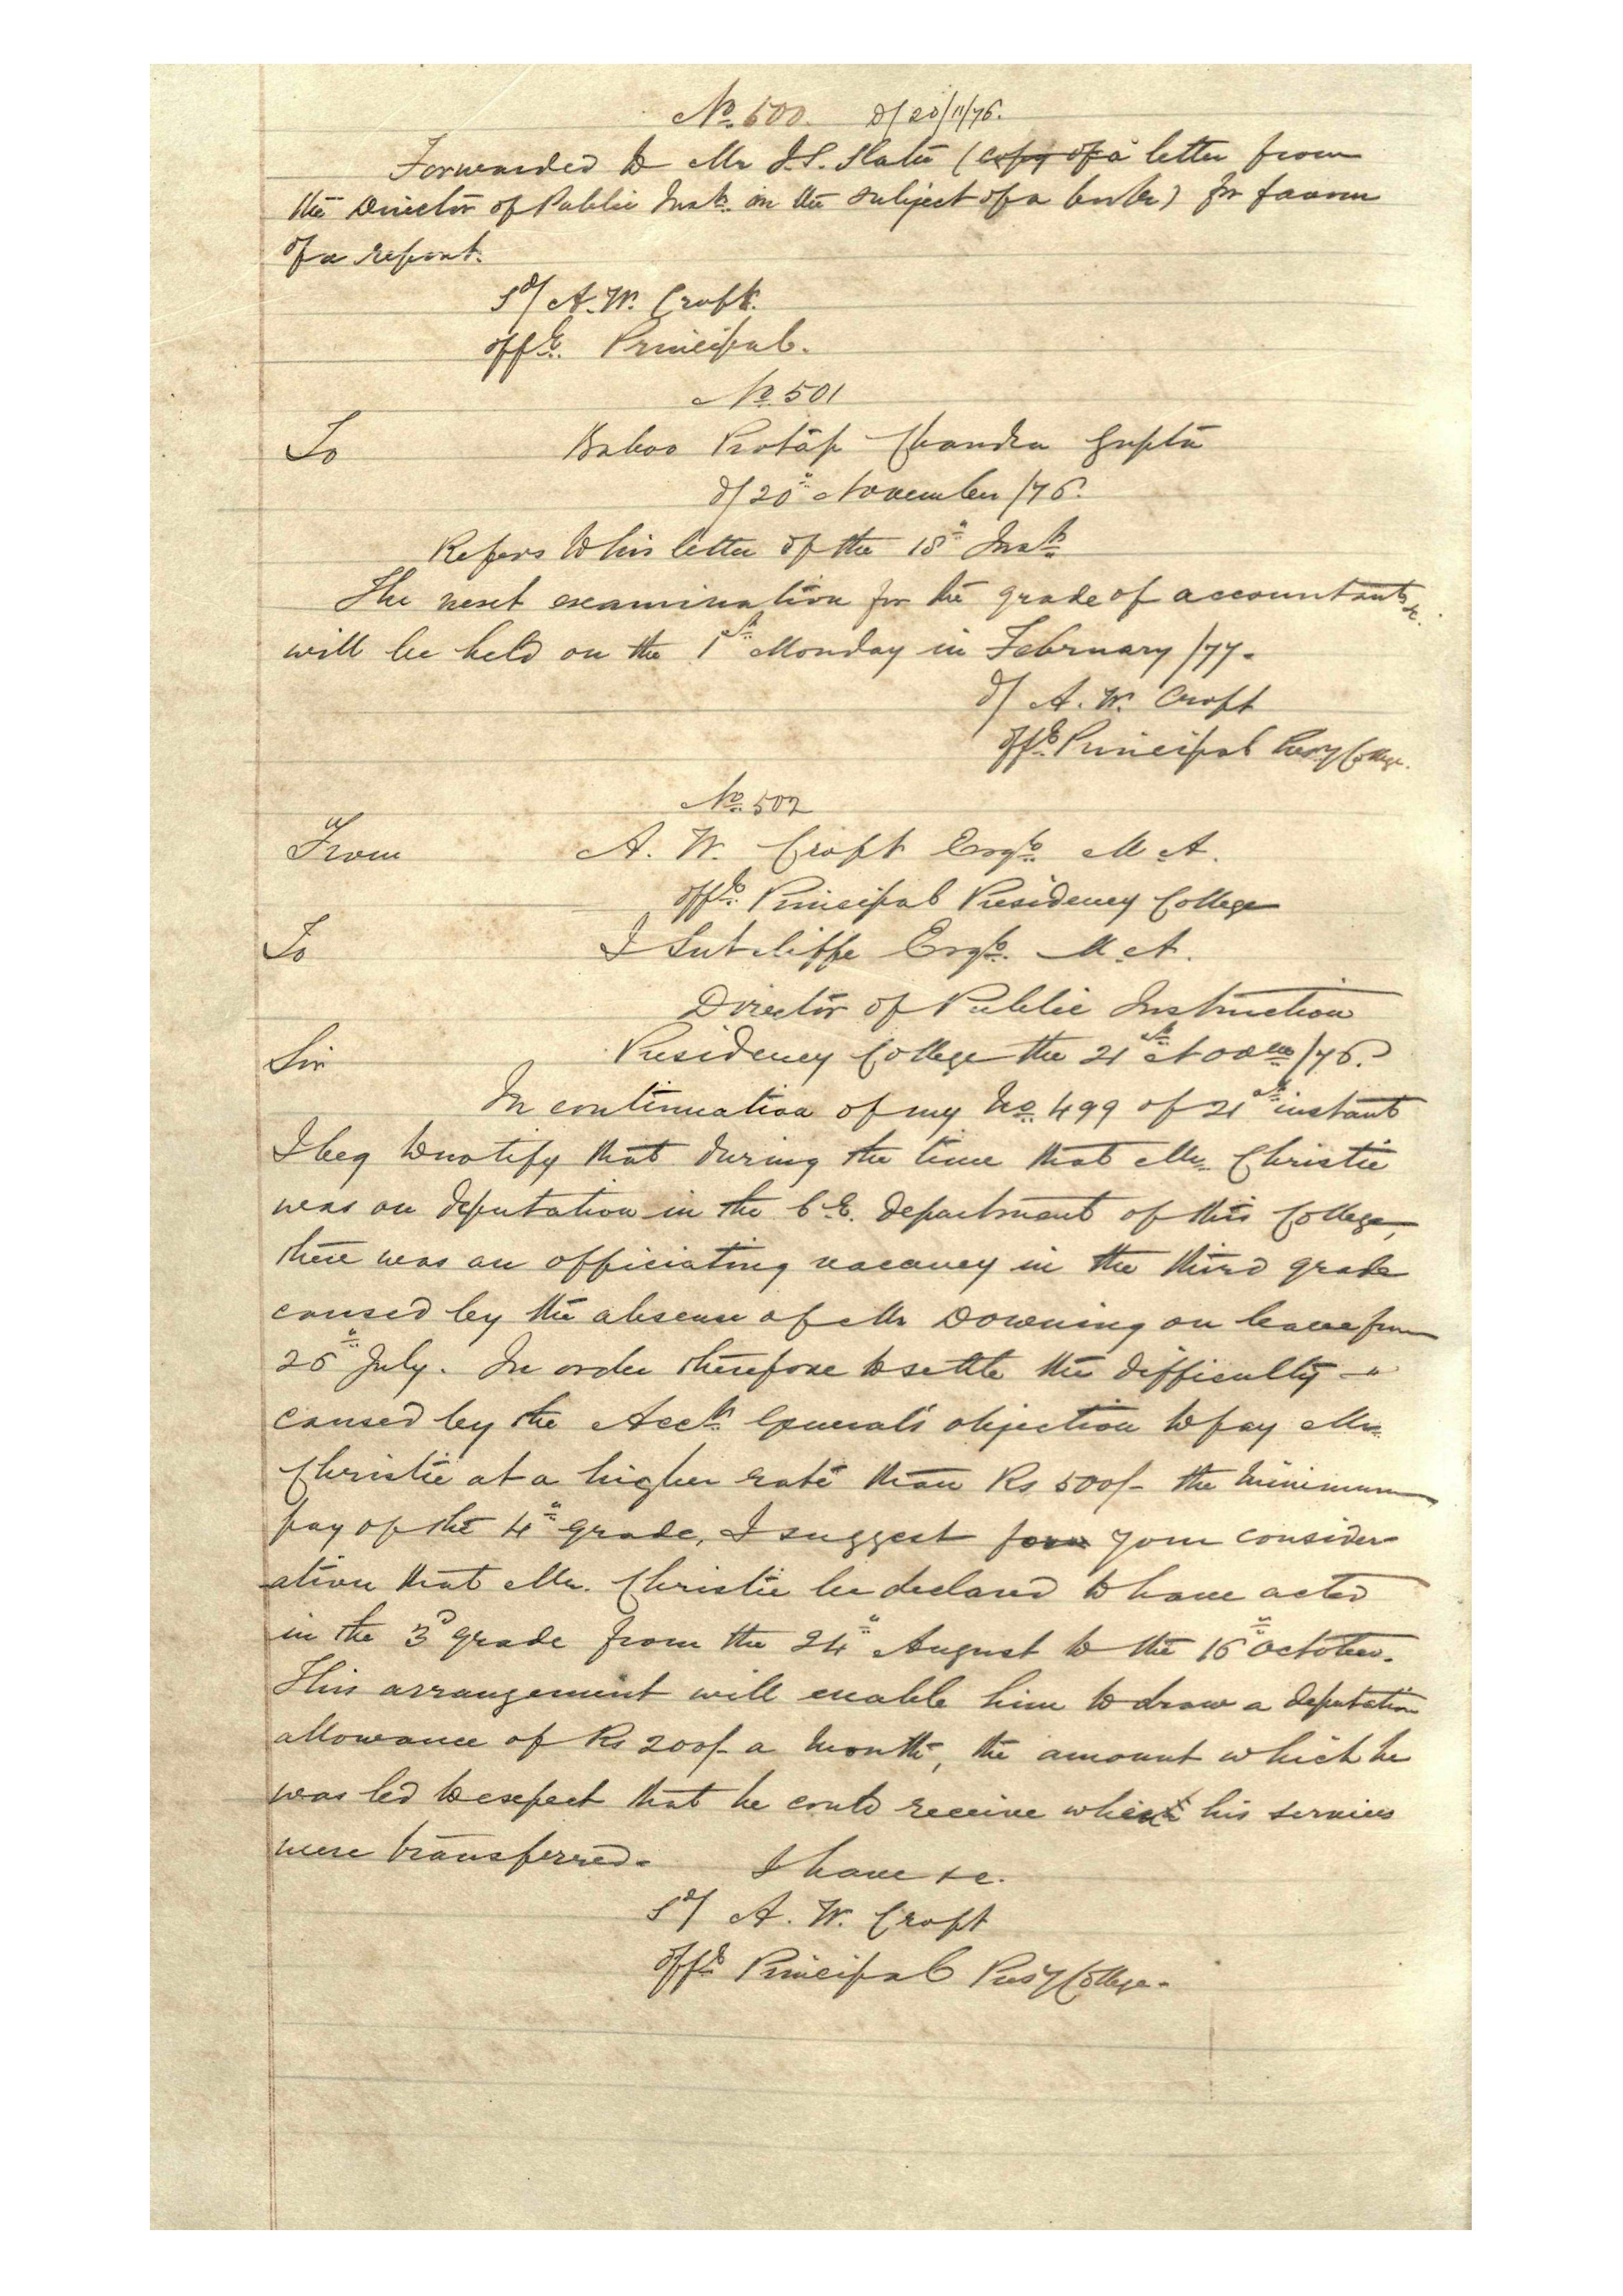 No. 500. d/ 20/11/76.
Forwarded to Mr J.S. Slater (copy of a letter from
the Director of Public Inst. on the subject of a ) for favour
of a report.
Sd/ A. W. Croft.
Offg. Principal.
No. 501
To Baboo Protap Chandra Gupta
d/ 20th November /76.
Refers to his letter of the 18th Inst.
The next examination for the grade of accountants &c.
will be held on the 1st Monday in February /77.
d/ A. W. Croft
Offg. Principal Presy College.
No. 502
From A. W. Croft Esqr. M A.
Offg. Principal Presidency College
To J Sutcliffe Esqr. M. A.
Director of Public Instruction
Sir Presidency College the 21st Novr. /76.
In continuation of my No. 499 of 21st instant
I beg to notify that during the time that Mr. Christie
was on deputation in the C.E. department of this College,
there was an officiating vacancy in the third grade
caused by the absence of Mr Downing on leave from
26th July. In order therefore to settle the difficulty -
caused by the Acctt. General's objection to pay Mr.
Christie at a higher rate than Rs 500/- the minimum
pay of the 4th grade, I suggest for your consider-
-ation that Mr. Christie be declared to have acted
in the 3d grade from the 24th August to the 16th October.
This arrangement will enable him to draw a deputation
allowance of Rs 200/- a month, the amount which he
was led to expect that he could receive when his services
were transferred. I have &c.
Sd/ A. W. Croft
Offg. Principal Presy College.